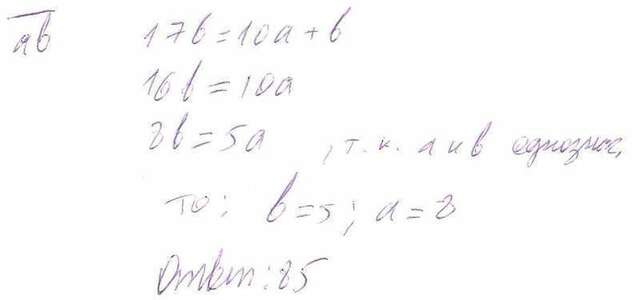 ab 17b=10a+b
16b=10a
8b=5a , т.к. a и b однознач.
то: b=5; a=8
Ответ: 85